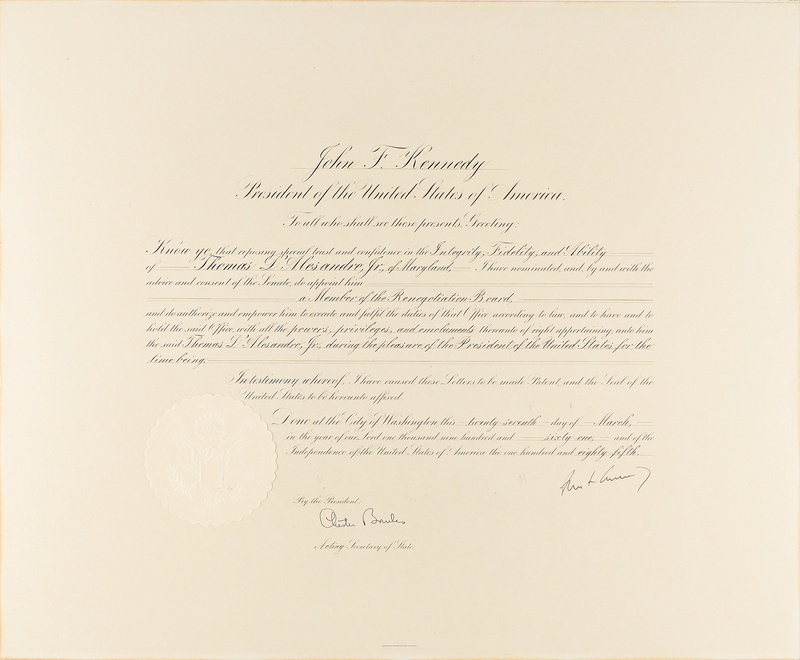 John F. Kennedy
President of the United States of America.
To all who shall see these presents, Greeting:
Know ye, that reposing special trust and confidence in the Integrity, Fidelity, and Ability
of Thomas D'Alesandro, Jr., of Maryland, I have nominated, and, by and with the
advice and consent of the Senate, do appoint him
a Member of the Renegotiation Board,
and do authorize and empower him to execute and fulfil the duties of that Office according to law, and to have and to
hold the said Office, with all the powers, privileges, and emoluments thereunto of right appertaining, unto him
the said Thomas D'Alesandro, Jr., during the pleasure of the President of the United States for the
time being.
In testimony whereof, I have caused these Letters to be made Patent, and the Seal of the
United States to be hereunto affixed.
Done at the City of Washington this twenty seventh day of March,
in the year of our Lord one thousand nine hundred and sixty one, and of the
Independence of the United States of America the one hundred and eighty fifth.
By the President:
Chester Bowles
Acting Secretary of State.